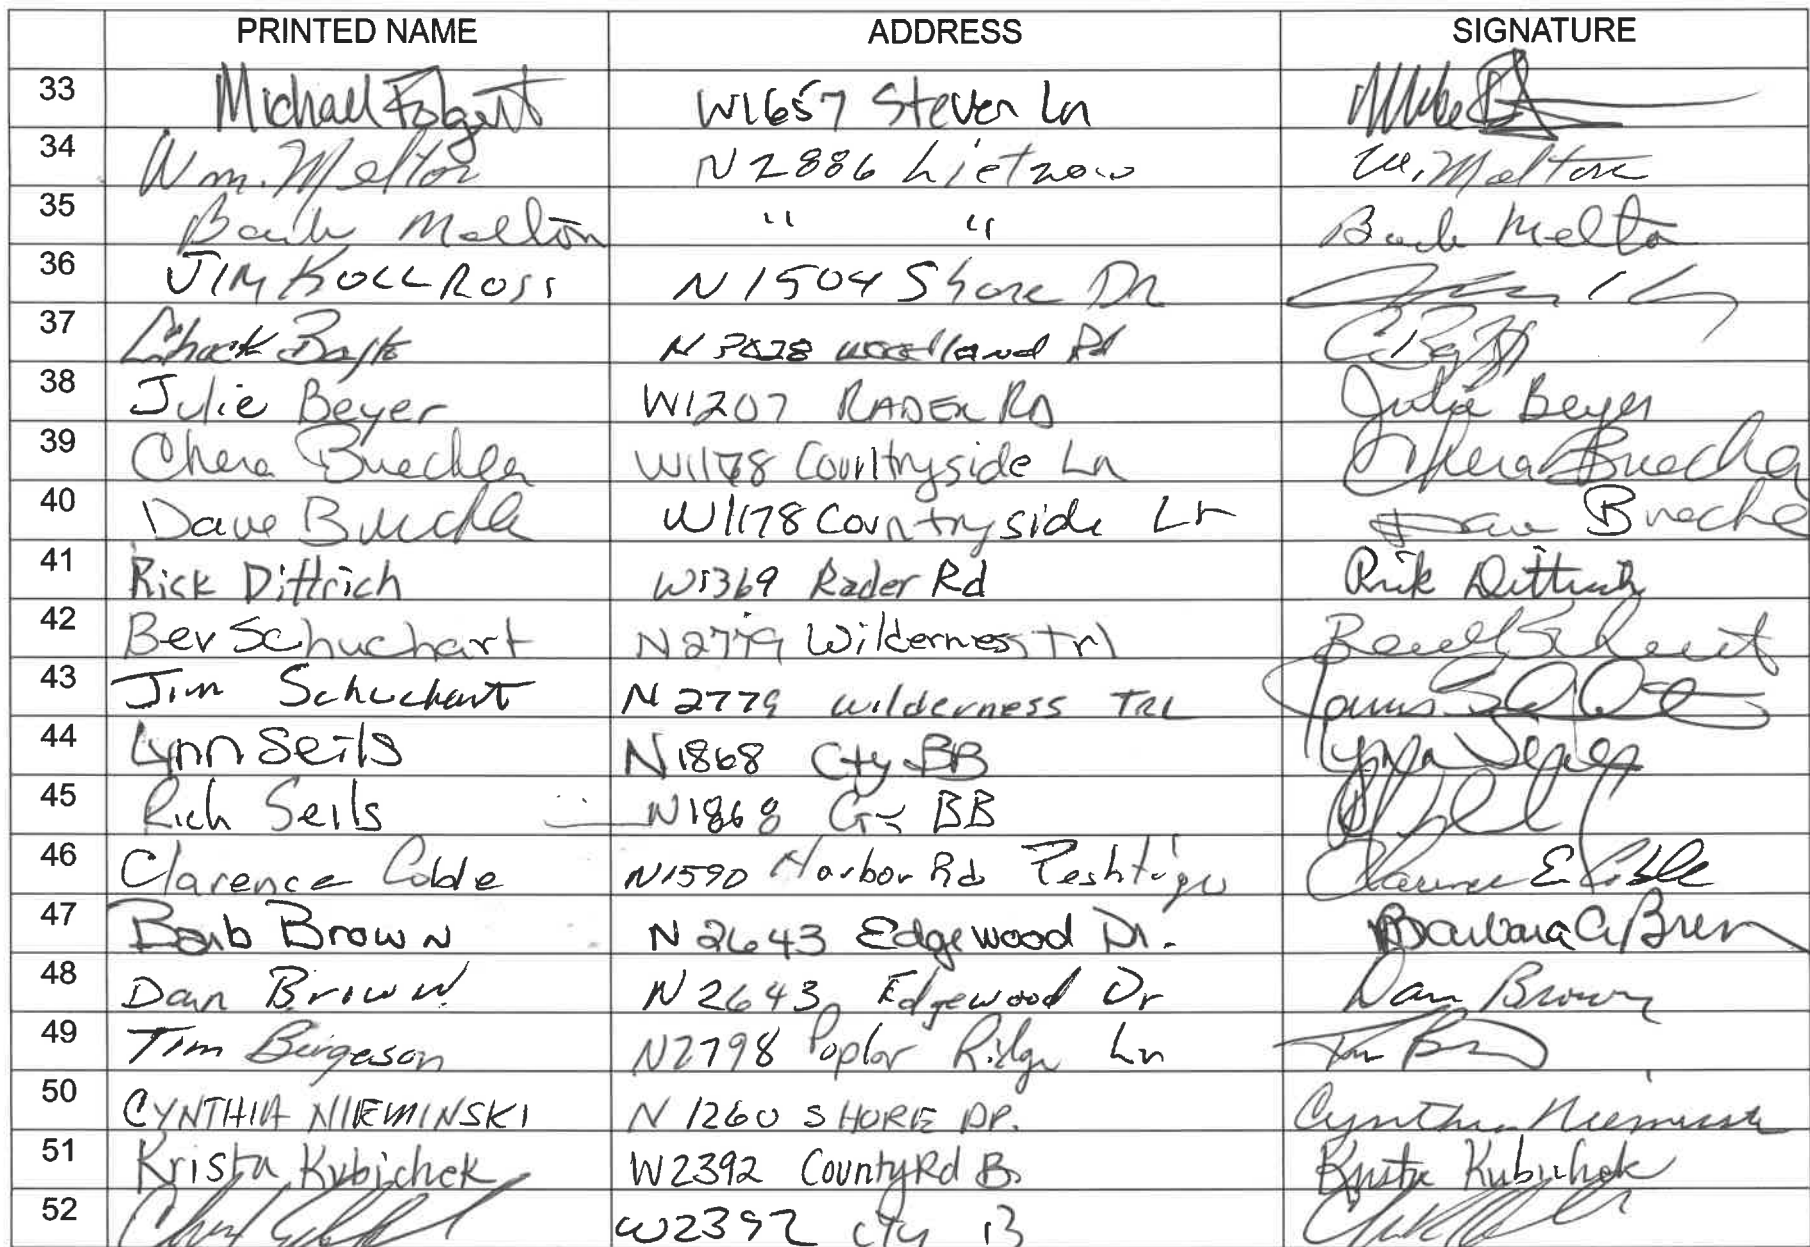 PRINTED NAME ADDRESS SIGNATURE
33 Michael W1657 Steven Ln Mike
34 Wm. Melton N2886 Lietzow W. Melton
35 Barb Melton " " Barb Melton
36 JIM KOLLROSS N1504 Shore Dr
37 Chuck Woodland Rd
38 Julie Beyer W1207 RADER RD Julie Beyer
39 Chera Buechler W1178 Countryside Ln Chera Buechler
40 Dave Buechler W1178 Countryside Ln Dave Bueche
41 Rick Dittrich W1369 Rader Rd Rick Dittrich
42 Bev Schuchart N2779 Wilderness Trl
43 Jim Schuchart N2779 wilderness TRL James
44 Lynn Seils N1868 Cty BB Lynn Seils
45 Rich Seils N1868 Cty BB
46 Clarence Coble N1590 Harbor Rd Peshtigo Clarence E. Coble
47 Barb Brown N2643 Edgewood Dr. Barbara A Brown
48 Dan Brown N2643 Edgewood Dr Dan Brown
49 Tim Birgeson N2798 Poplar Ridge Ln Tim
50 CYNTHIA NIEMINSKI N1260 SHORE DR. Cynthia Nieminski
51 Krista Kubichek W2392 County Rd B Krista Kubichek
52 W2392 cty B